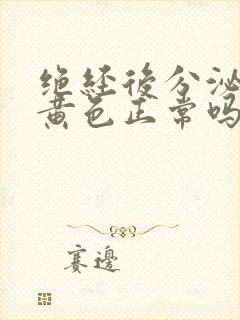 绝经后分泌
黄色正常吗
赛边